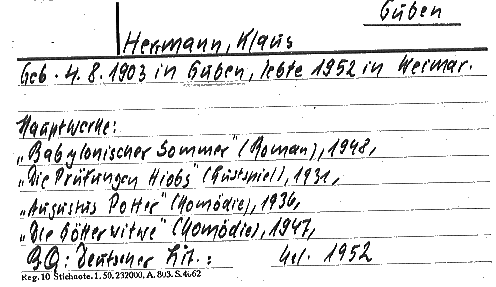 Guben
Herrmann, Klaus
Geb. 4.8.1903 in Guben, lebte 1952 in Weimar.
Hauptwerke:
„Babylonischer Sommer" (Roman), 1948,
„Die Prüfungen Hiobs" (Lustspiel), 1931,
„Augustus Potter" (Komödie), 1936,
„Die Götterwitwe" (Komödie), 1947,
BQ: Deutscher Lit.: 1952
Reg. 10 Stichnote. 1. 50. 232000. A. 803. S. 4662